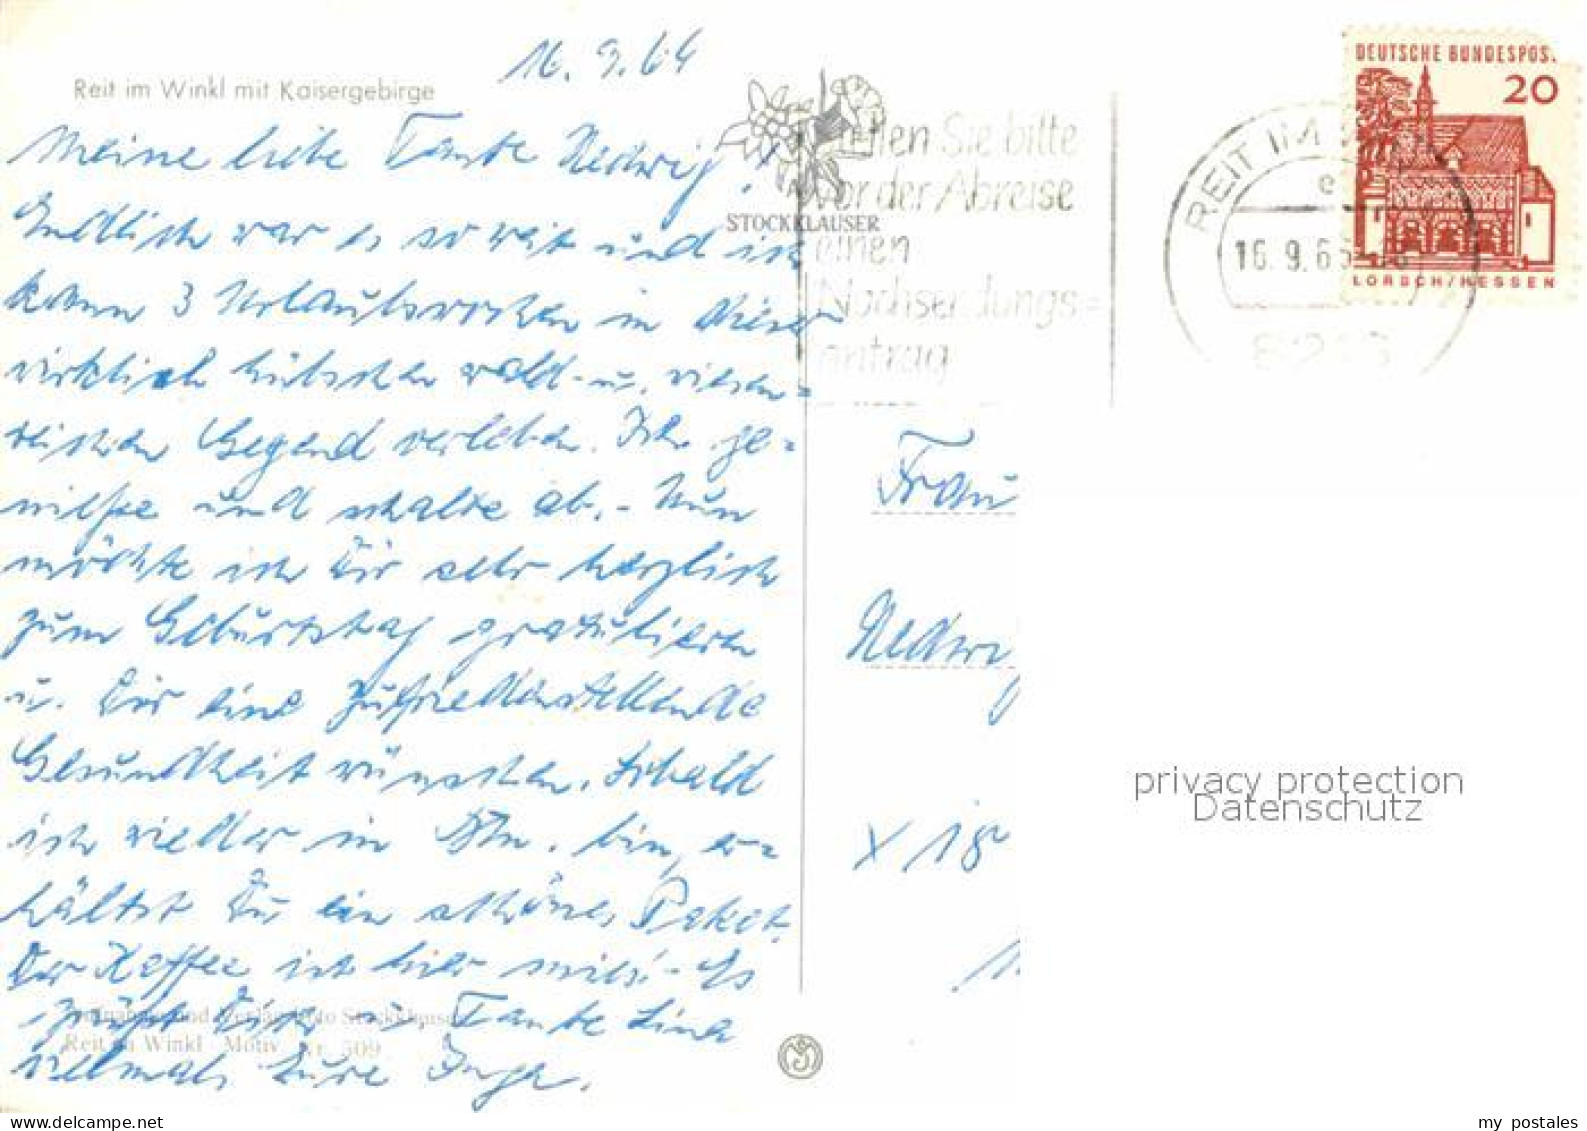 16. 9. 64
Reit im Winkl mit Kaisergebirge
Meine liebe Tante Hedwig!
Endlich war es so weit und ich
kann 3 Urlaubswochen in dieser
wirklich hübschen wald- u. wiesen=
reichen Gegend verleben. Ich ge=
nieße und schalte ab. - Nun
möchte ich Dir sehr herzlich
zum Geburtstag gratulieren
u. Dir eine zufriedenstellende
Gesundheit wünschen. Sobald
ich wieder in Dtm. bin, er=
hältst Du ein schönes Paket.
Der Kaffee ist hier mies! - Es
grüßt Dich u. Tante Lina
vielmals Eure Inge.
Aufnahme und Verlag Foto Stockklauser
Reit im Winkl Motiv Nr. 509
STOCKKLAUSER
Stellen Sie bitte
vor der Abreise
einen
Nachsendungs=
antrag
REIT IM
e
16. 9. 65
DEUTSCHE BUNDESPOS.
20
LORSCH/HESSEN
Frau
Hedwig
X 18
privacy protection
Datenschutz
www.delcampe.net
my_postales